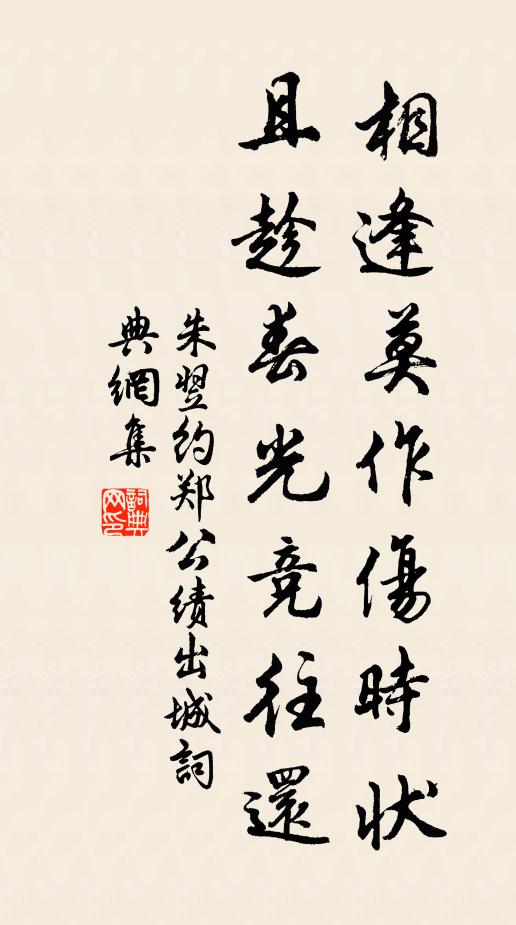 相逢莫作傷時状
且趁春光竞往還
朱翌约郑公绩出城詞
典網集
詞典网印